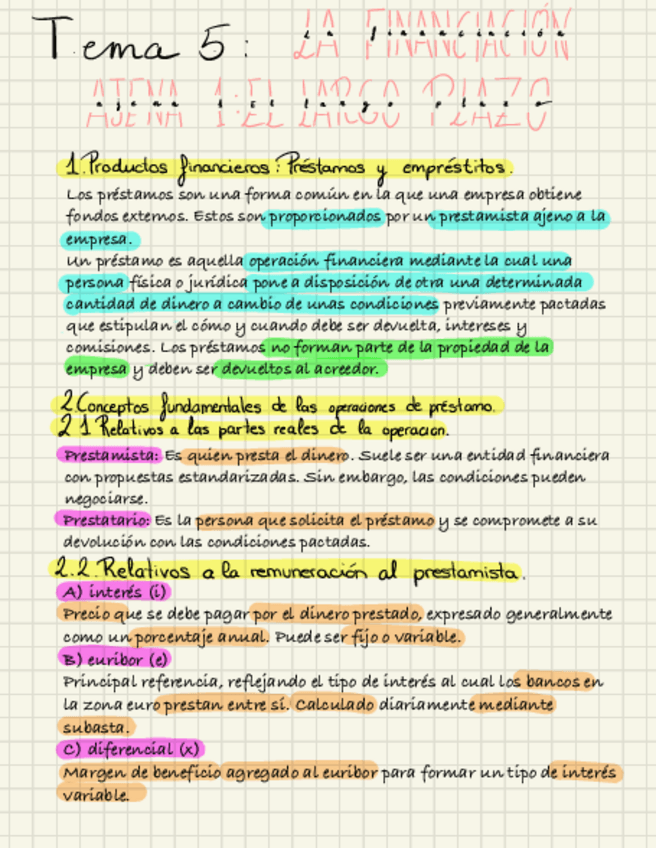 Tema 5: LA FINANCIACIÓN
AJENA 1: EL LARGO PLAZO
1. Productos financieros: Préstamos y empréstitos.
Los préstamos son una forma común en la que una empresa obtiene
fondos externos. Estos son proporcionados por un prestamista ajeno a la
empresa.
Un préstamo es aquella operación financiera mediante la cual una
persona física o jurídica pone a disposición de otra una determinada
cantidad de dinero a cambio de unas condiciones previamente pactadas
que estipulan el cómo y cuando debe ser devuelta, intereses y
comisiones. Los préstamos no forman parte de la propiedad de la
empresa y deben ser devueltos al acreedor.
2 Conceptos fundamentales de las operaciones de préstamo.
2 1 Relativos a las partes reales de la operacion.
Prestamista: Es quien presta el dinero. Suele ser una entidad financiera
con propuestas estandarizadas. Sin embargo, las condiciones pueden
negociarse.
Prestatario: Es la persona que solicita el préstamo y se compromete a su
devolución con las condiciones pactadas.
2.2. Relativos a la remuneración al prestamista.
A) interés (i)
Precio que se debe pagar por el dinero prestado, expresado generalmente
como un porcentaje anual. Puede ser fijo o variable.
B) euribor (e)
Principal referencia, reflejando el tipo de interés al cual los bancos en
la zona euro prestan entre sí. Calculado diariamente mediante
subasta.
C) diferencial (x)
Margen de beneficio agregado al euribor para formar un tipo de interés
variable.